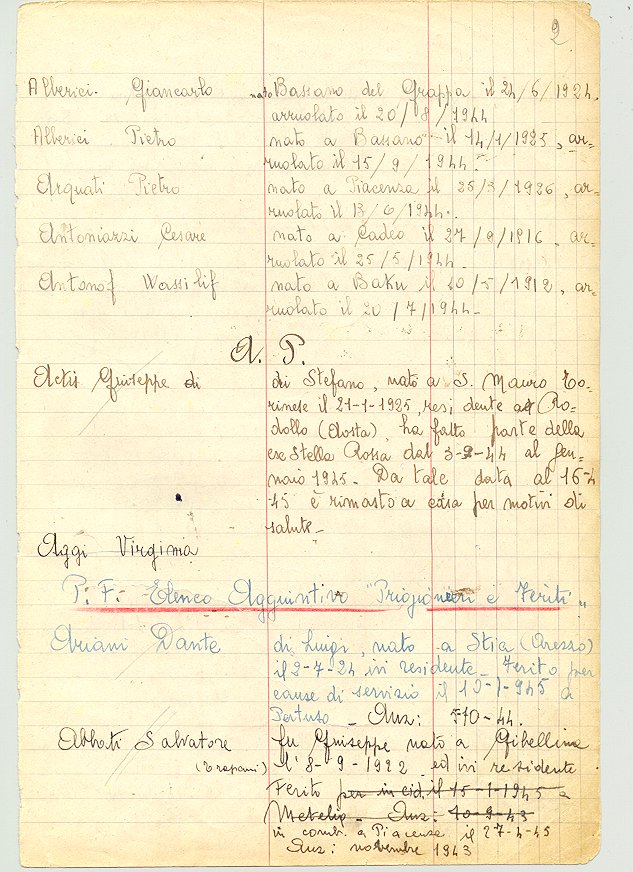 2
Alberici. Giancarlo nato Bassano del Grappa il 24/6/1924.
arruolato il 20/8/1944
Alberici Pietro nato a Bassano il 14/1/1925, ar=
ruolato il 15/9/1944.
Arquati Pietro nato a Piacenza il 25/3/1926, ar=
ruolato il 13/6/1944.
Antoniazzi Cesare nato a Cadeo il 27/9/1916, ar=
ruolato il 25/5/1944
Antonof Wassilif nato a Baku il 20/5/1912, ar=
ruolato il 20/7/1944-
A. P.
Actis Giuseppe di di Stefano, nato a S. Mauro To=
rinese il 21-1-1925, residente a Ro=
dollo (Aosta), ha fatto parte della
exe Stella Rossa dal 3-2-44 al Gen=
naio 1945- Da tale data al 16-4
45 è rimasto a casa per motivi di
salute-
Aggi Virginia
P. F. - Elenco Aggiuntivo "Prigionieri e Feriti"
Ariani Dante di Luigi, nato a Stia (Arezzo)
il 2-7-24 ivi residente- Ferito per
cause di servizio il 10-1-945 a
Pertuso - Anz: 7-10-44.
Abbati Salvatore fu Giuseppe nato a Gibellina
(Trapani) l'8-9-1922 ed ivi residente
Ferito per incid. il 15-1-1945 a
Anz: 10-9-43
in comb. a Piacenza il 27-4-45
Anz: novembre 1943